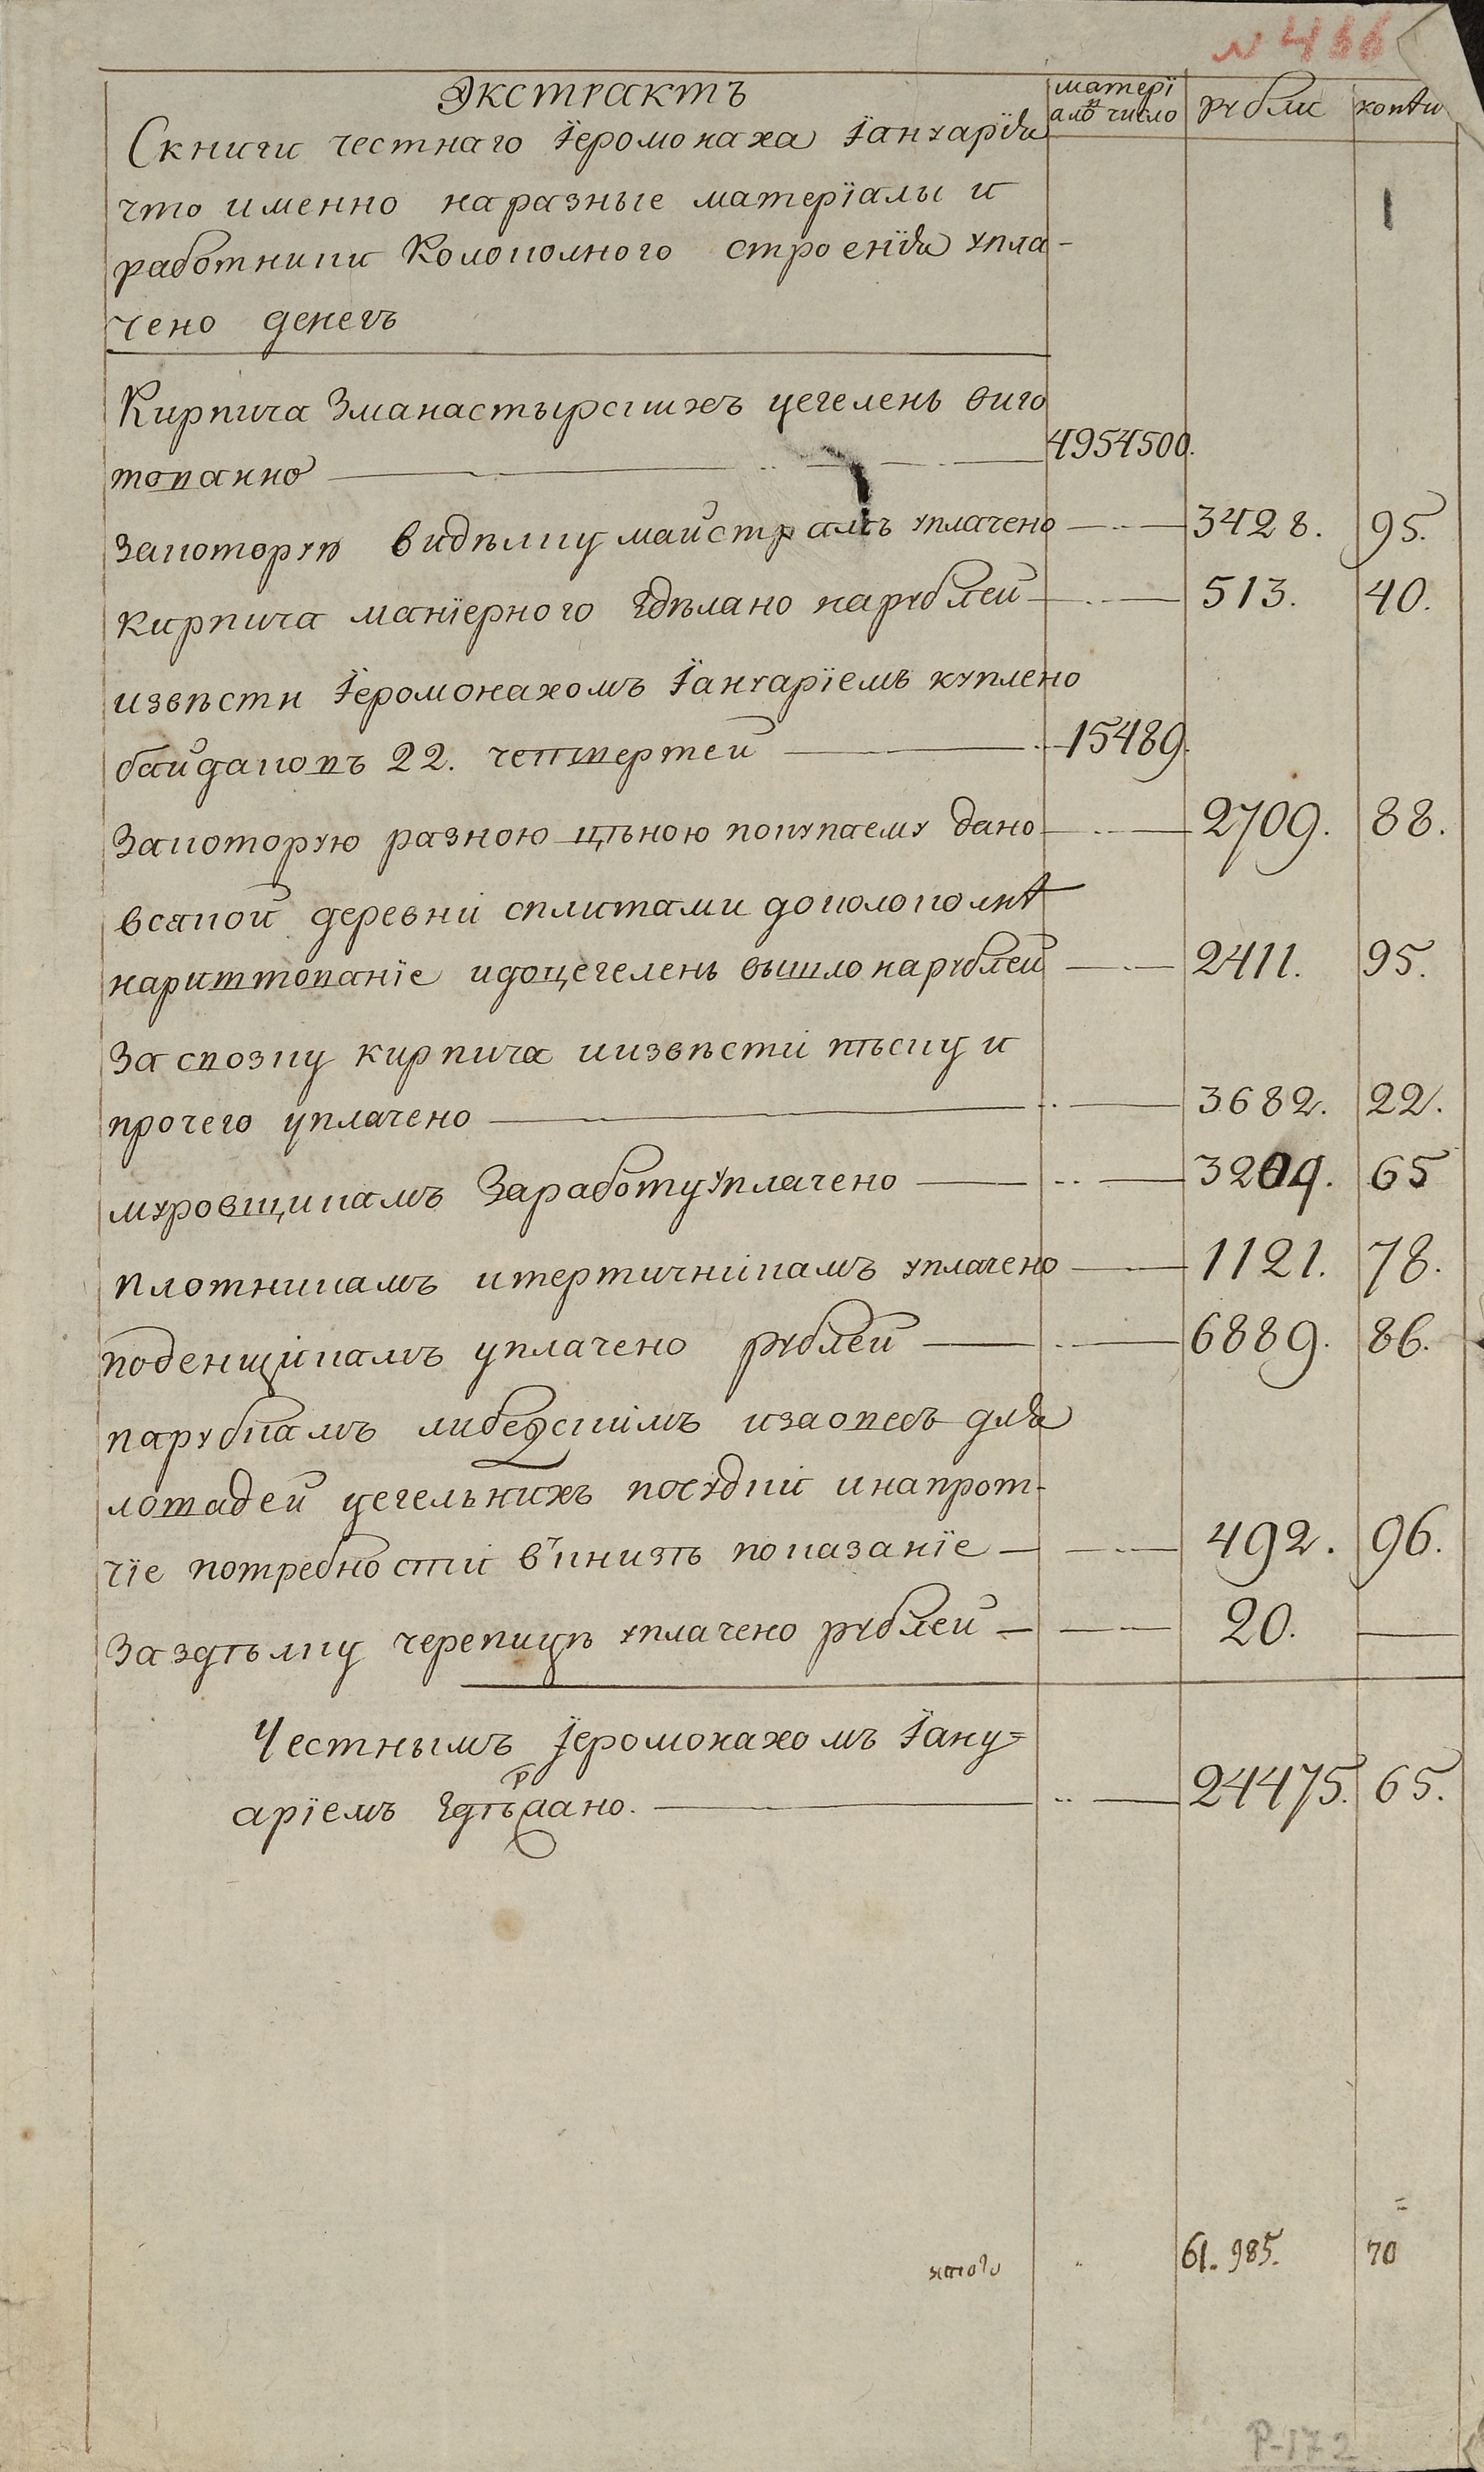 N 466
Экстрактъ
матері
алъ число
рубли
копѣи
С книги честнаго Іеромонаха Іануарїѧ
что именно на разные матерїалы и
работники колоколного строенїѧ упла-
чено денегъ
Кирпича Зманастырскихъ цегелень виго
тованно 4954500.
Закоторую видѣлку майстрамъ уплачено 3428. 95.
кирпича манїерного здѣлано на рублей 513. 40.
извѣсти Іеромонахомъ Іануарїемъ куплено
байдаковъ 22. четвертей 15489.
Закоторую разною цѣною покупаему дано 2709. 88.
всякой деревни сплитами доколоколнѣ
нариштованїе идоцегелень вышло на рублей 2411. 95.
За свозку кирпича иизвѣсти пѣску и
прочего уплачено 3682. 22.
муровщикамъ Заработу уплачено 3204. 65
плотникамъ итертичникамъ уплачено 1121. 78.
поденщикамъ уплачено рублей 6889. 86.
парубкамъ либедскимъ изаовесъ длѧ
лошадей цегельнихъ посудки инапрот-
чїе потребности въ книзѣ показанїе 492. 96.
За здѣлку черепицѣ уплачено рублей 20.
Честнымъ Іеромонахомъ Іану=
арїемъ здѣрано. 24475. 65.
итого 61. 985. 70
Р-172